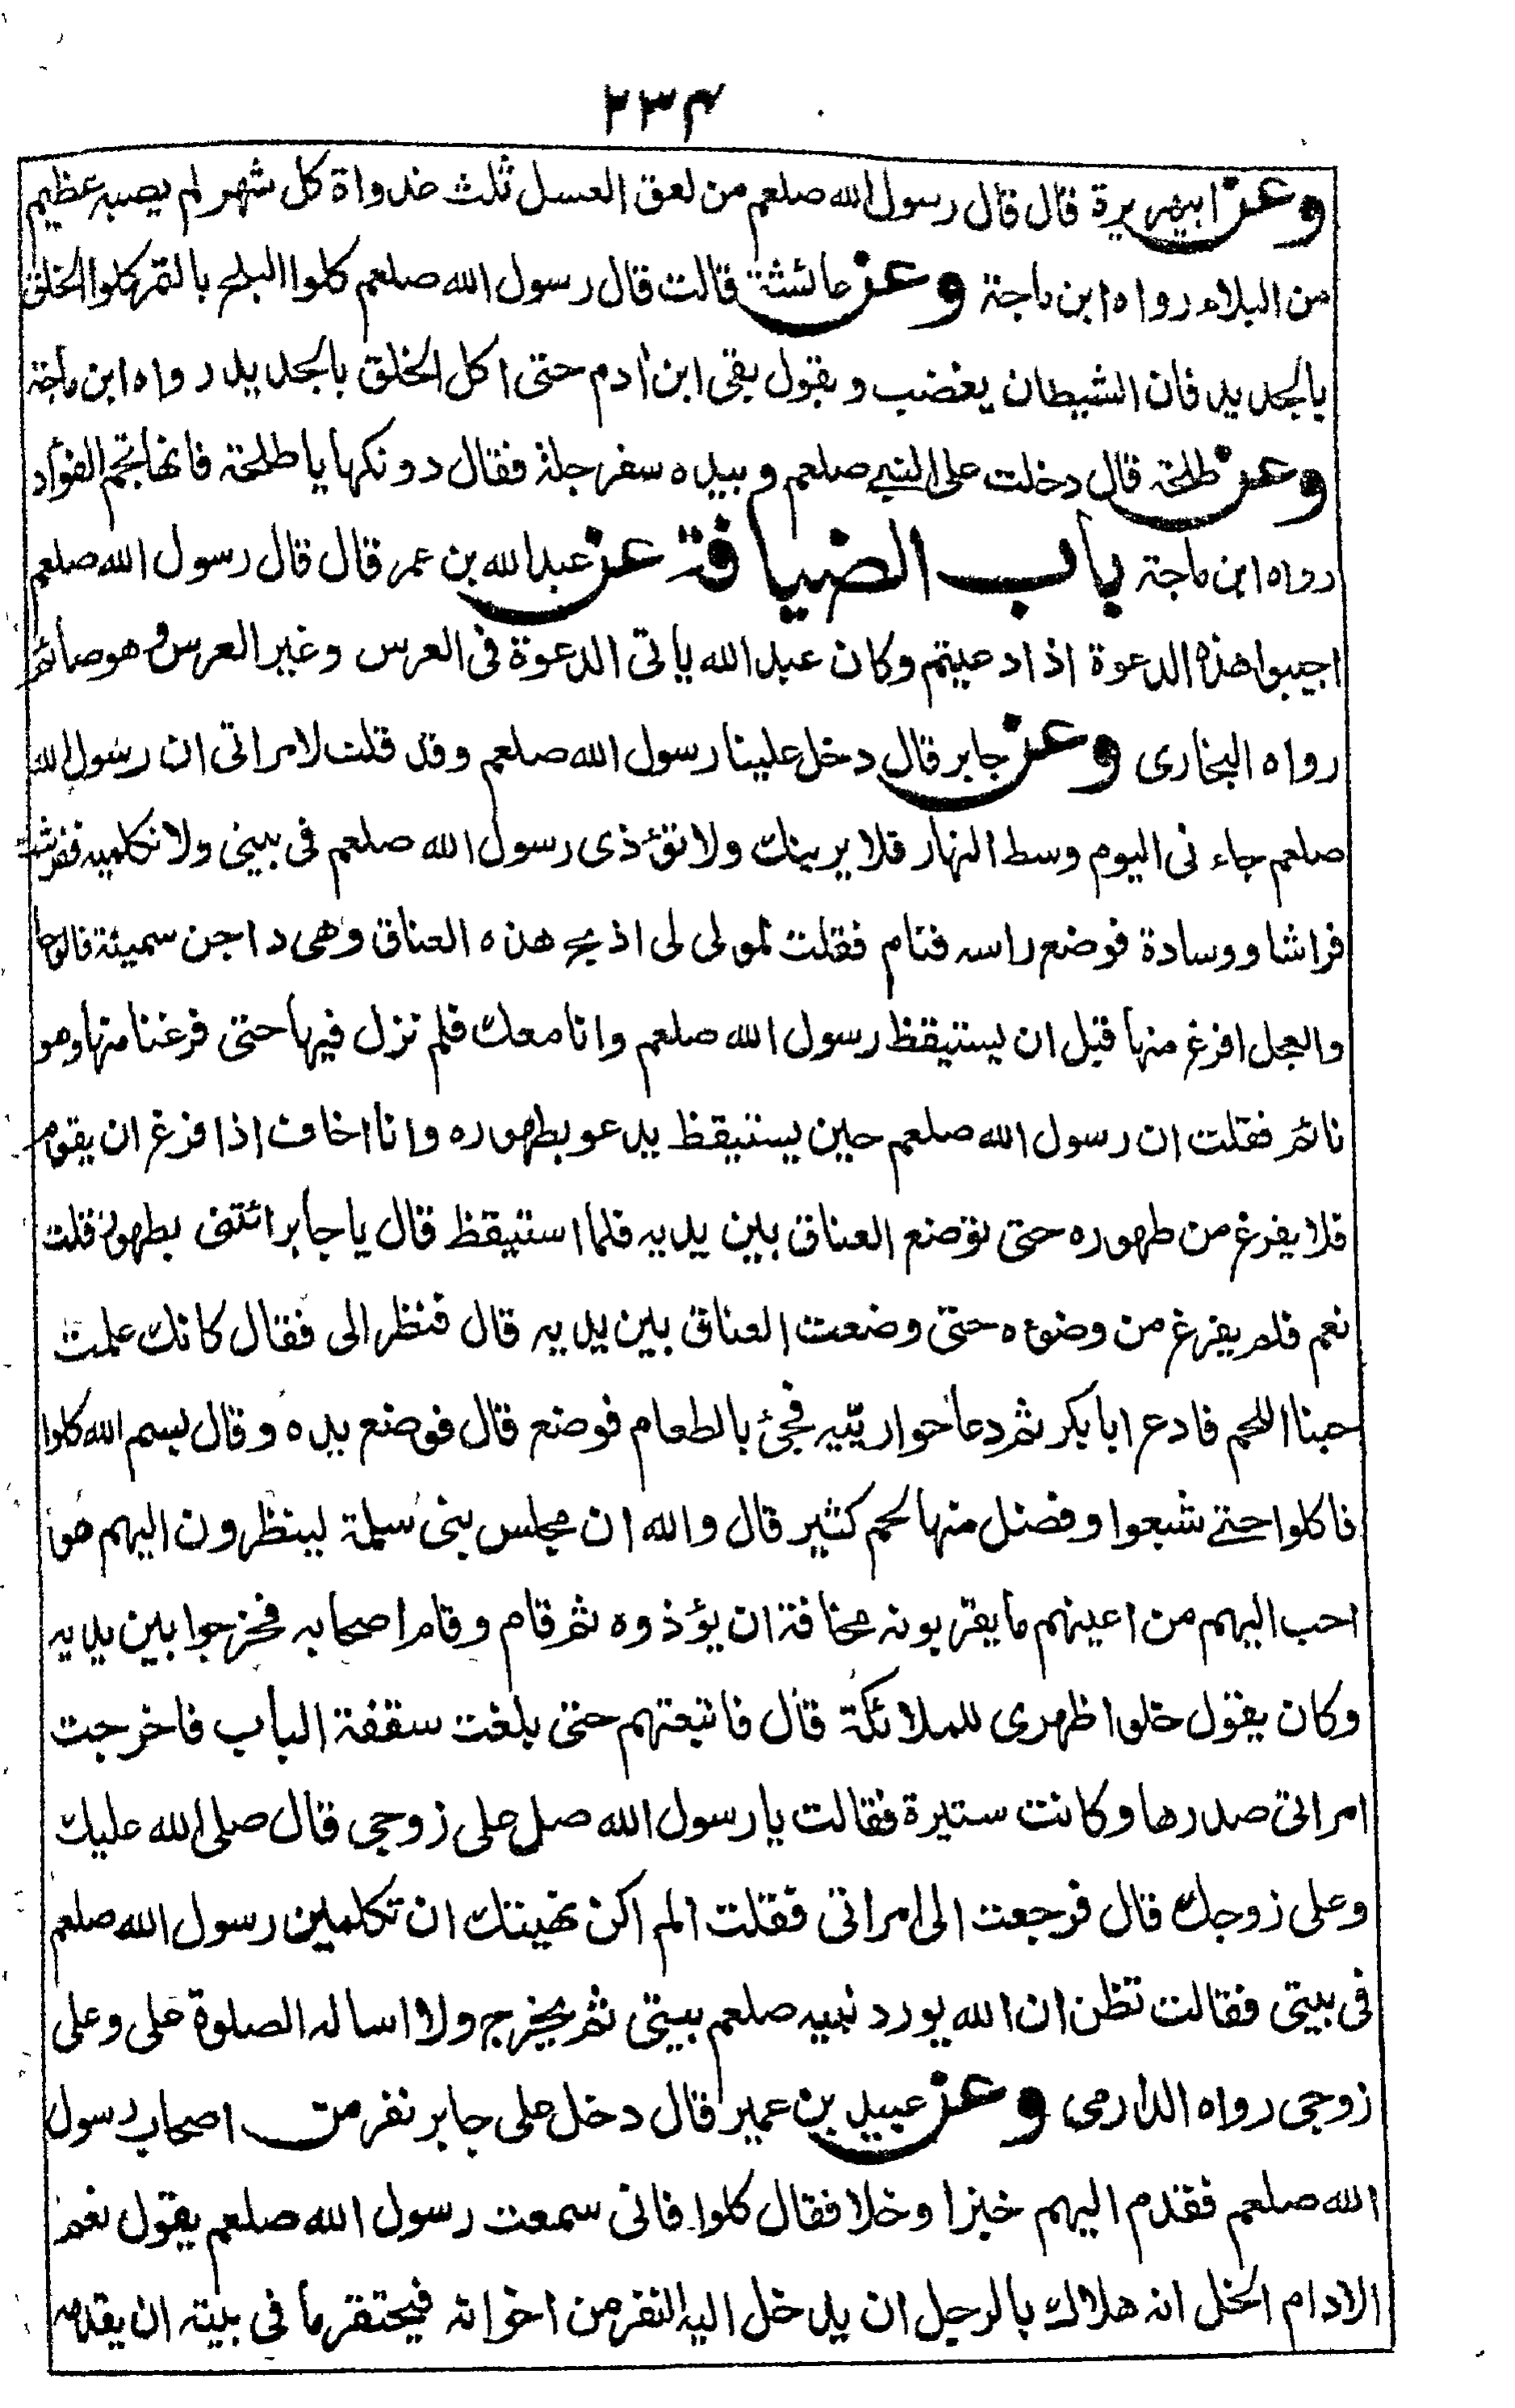 ٢٣٤
وعن ابيهريرة قال قال رسول الله صلعم من لعق العسل ثلث غدواة كل شهر لم يصبه عظيم
من البلاء رواه ابن ماجة وعن عائشة قالت قال رسول الله صلعم كلوا البلح بالتمر كلوا الخلق
بالجديد فان الشيطان يغضب و يقول بقى ابن ادم حتى اكل الخلق بالجديد رواه ابن ماجة
وعن طلحة قال دخلت على النبي صلعم و بيده سفرجلة فقال دونكها يا طلحة فانها تجم الفؤاد
رواه ابن ماجة باب الضيافة عن عبد الله بن عمر قال قال رسول الله صلعم
اجيبوا هذه الدعوة اذا دعيتم وكان عبد الله ياتى الدعوة فى العرس وغير العرس وهو صائم
رواه البخارى وعن جابر قال دخل علينا رسول الله صلعم وقد قلت لامراتى ان رسول الله
صلعم جاءنى اليوم وسط النهار فلا يرينك ولا تؤذى رسول الله صلعم فى بيتى ولا تكلميه ففرشت
فراشا ووسادة فوضع راسه فنام فقلت لمولى لى اذبح هذه العناق وهى داجن سمينة فالوحا
والعجل افرغ منها قبل ان يستيقظ رسول الله صلعم وانا معك فلم نزل فيها حتى فرغنا منها وهو
نائم فقلت ان رسول الله صلعم حين يستيقظ يدعو بطهوره وانا اخاف اذا فرغ ان يقوم
فلا يفرغ من طهوره حتى توضع العناق بين يديه فلما استيقظ قال يا جابر ائتنى بطهور قلت
نعم فلم يفرغ من وضوءه حتى وضعت العناق بين يديه قال فنظر الى فقال كانك علمت
حبنا اللحم فادع ابا بكر ثم دعا حواريّيه فجئ بالطعام فوضع قال فوضع يده وقال بسم الله كلوا
فاكلوا حتى شبعوا وفضل منها لحم كثير قال والله ان مجلس بنى سلمة لينظرون اليهم هو
احب اليهم من اعينهم ما يقربونه مخافة ان يؤذوه ثم قام وقام اصحابه فخرجوا بين يديه
وكان يقول خلوا ظهرى للملائكة قال فاتبعتهم حتى بلغت سقفة الباب فاخرجت
امراتى صدرها وكانت ستيرة فقالت يا رسول الله صل على زوجى قال صلى الله عليك
وعلى زوجك قال فرجعت الى امراتى فقلت الم اكن نهيتك ان تكلمين رسول الله صلعم
فى بيتى فقالت تظن ان الله يورد نبيه صلعم بيتى ثم يخرج ولا اساله الصلوة على وعلى
زوجى رواه الدارمى وعن عبيد بن عمير قال دخل على جابر نفر من اصحاب رسول
الله صلعم فقدم اليهم خبزا وخلا فقال كلوا فانى سمعت رسول الله صلعم يقول نعم
الادام الخل انه هلاك بالرجل ان يدخل اليه النفر من اخوانه فيحتقر ما فى بيته ان يقدمه